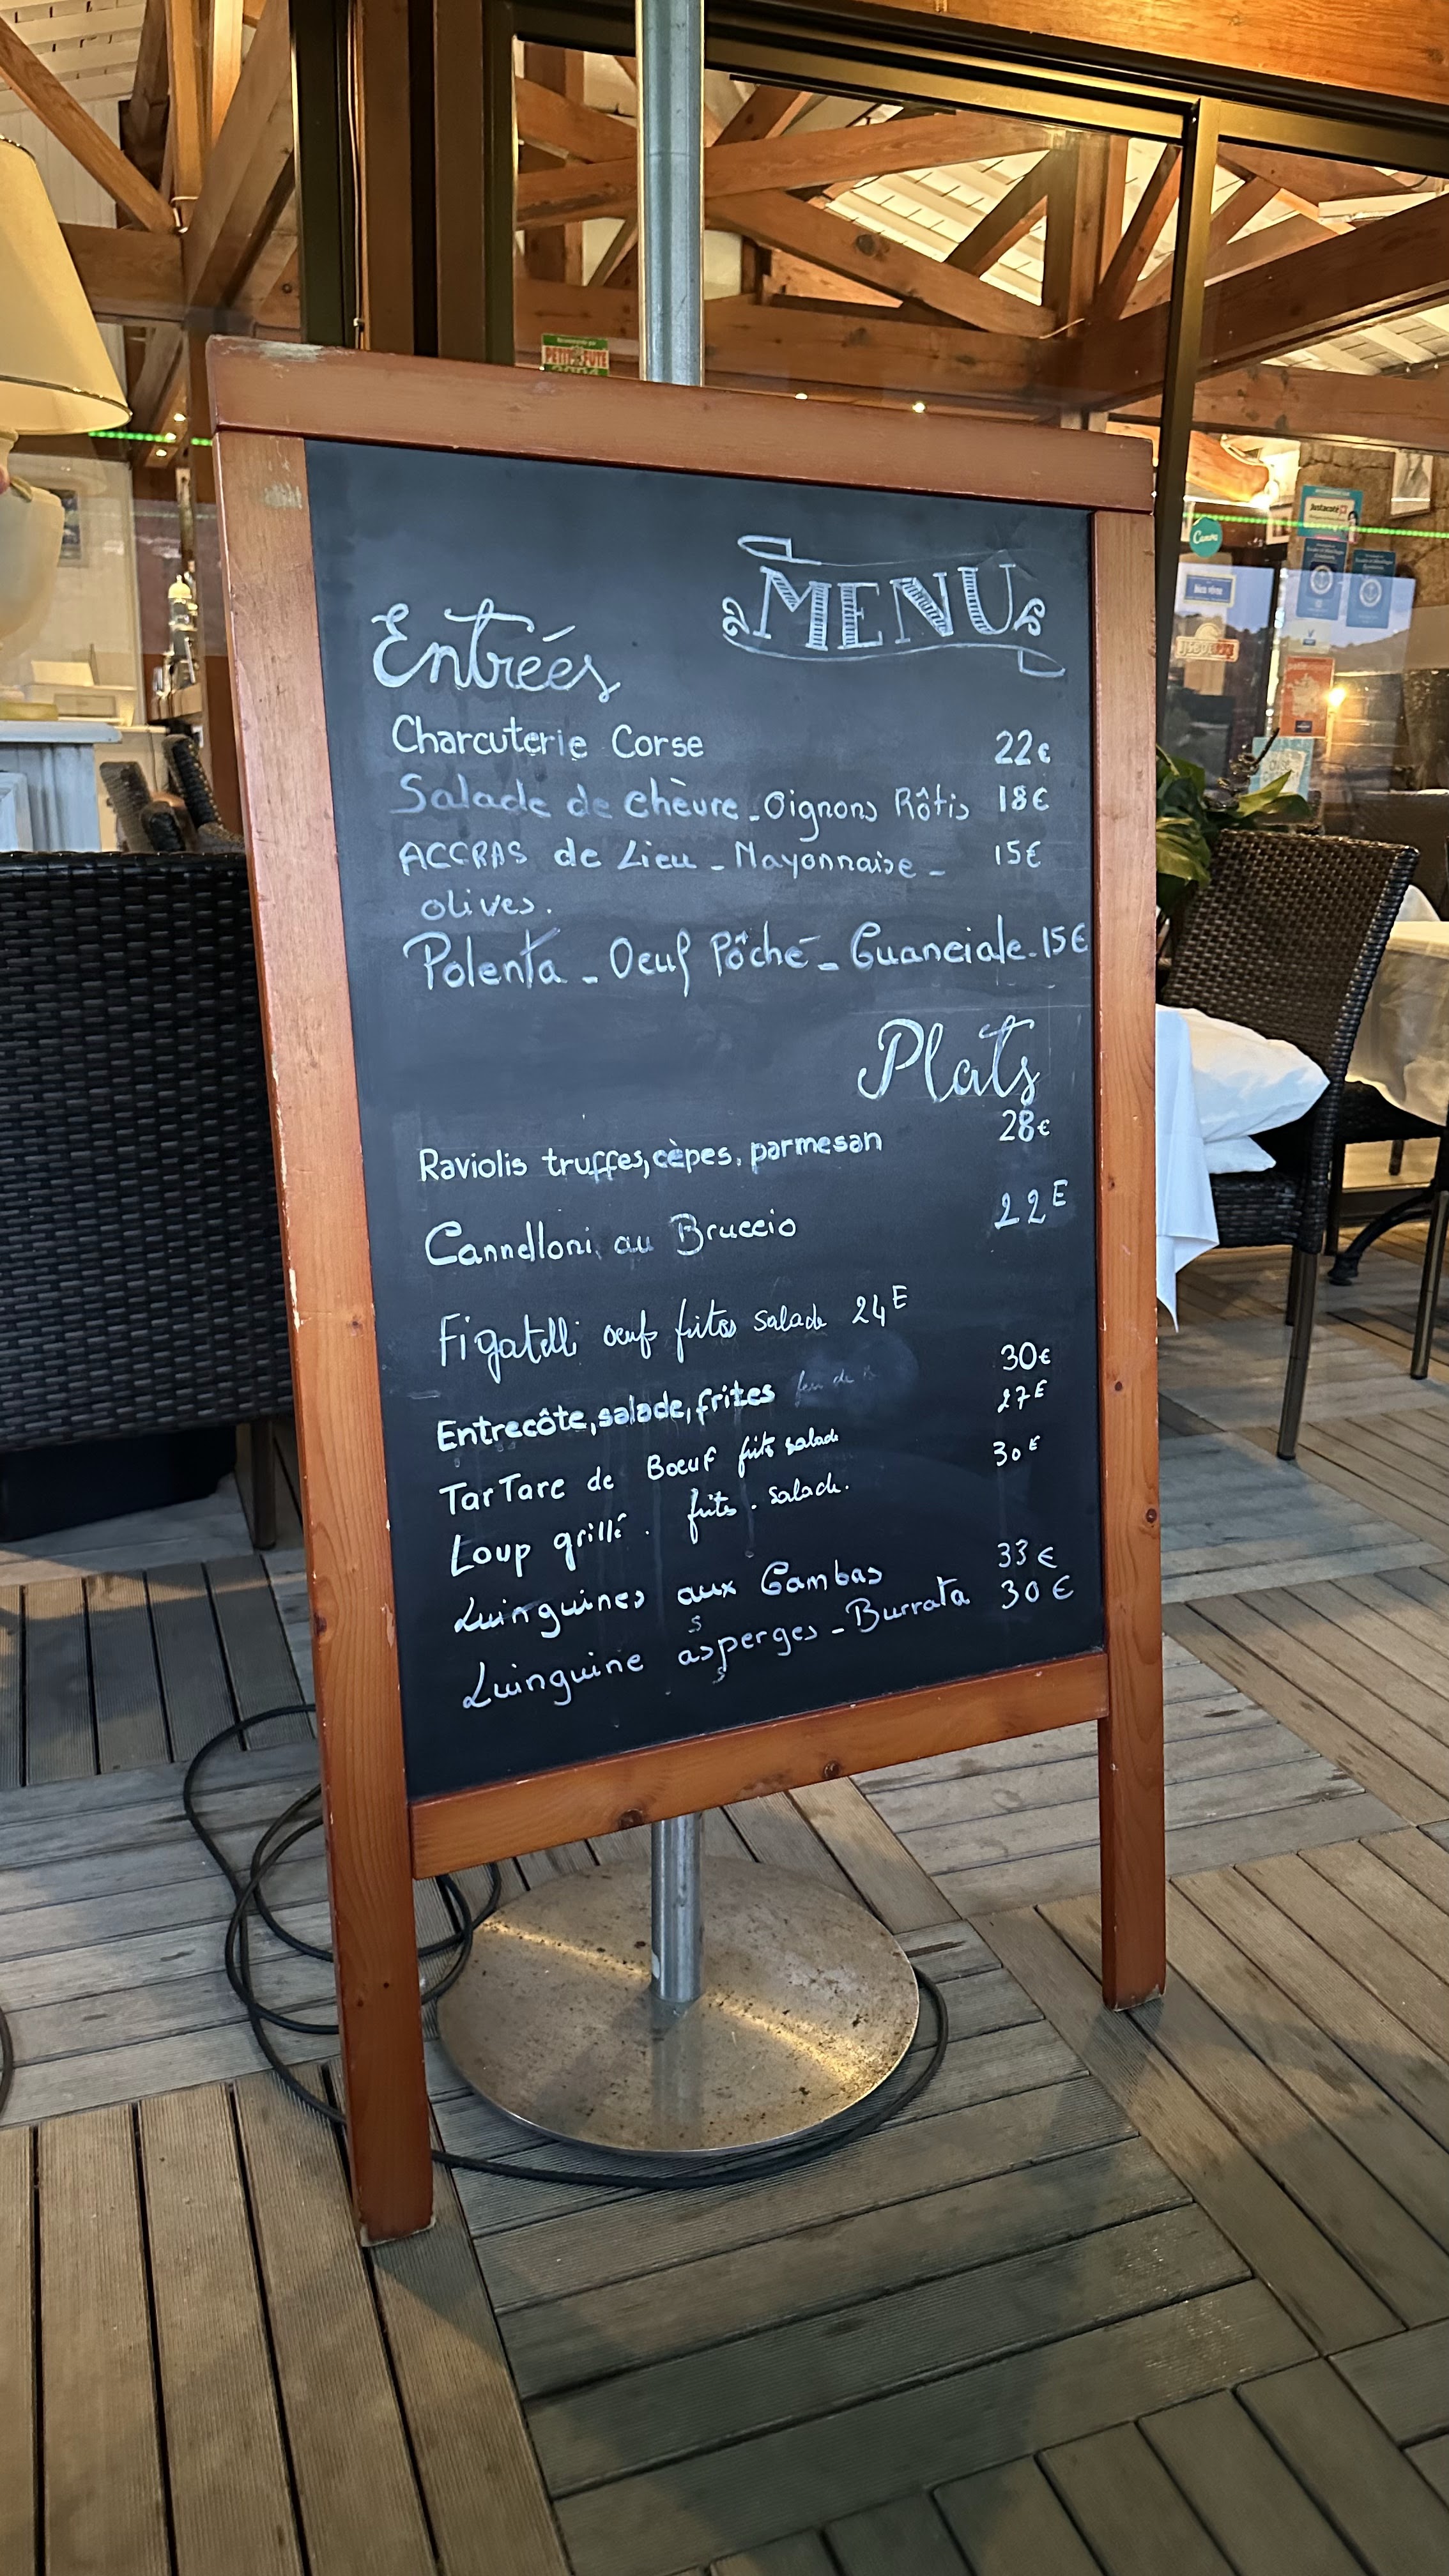 MENU
Entrées
Charcuterie Corse 22€
Salade de chèvre - Oignons Rôtis 18€
ACCRAS de Lieu - Mayonnaise - 15€
olives.
Polenta - Oeuf Pôché - Guanciale - 15€
Plats
Raviolis truffes, cèpes, parmesan 28€
Cannelloni au Bruccio 22E
Figatelli oeufs frites salade 24E
Entrecôte, salade, frites 30€
TarTare de Boeuf frits salade 27E
Loup grillé . frits . salade. 30E
Luinguines aux Gambas 33€
Luinguine asperges - Burrata 30€
PETIT FUTÉ
Justacoté
petit